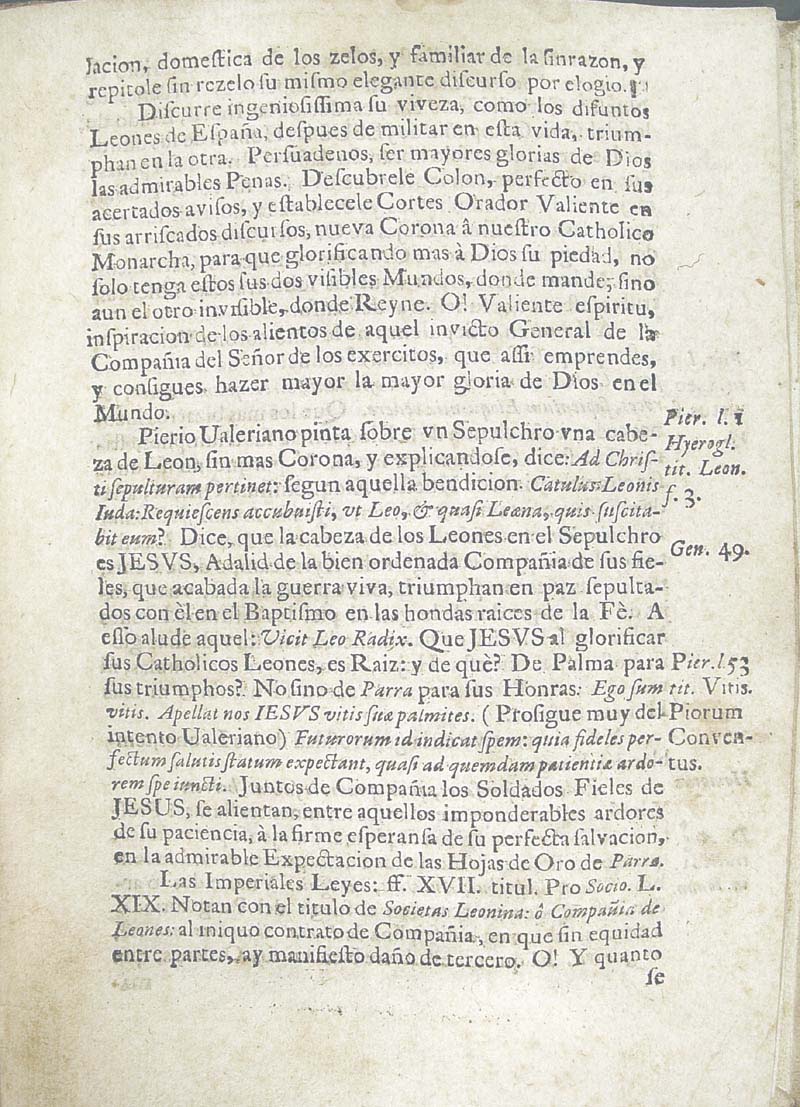 lacion, domestica de los zelos, y familiar de la sinrazon, y
repitole sin rezelo su mismo elegante discurso por elogio.
Discurre ingeniosissima su viveza, como los difuntos
Leones de España, despues de militar en esta vida, trium-
phan en la otra. Persuadenos, ser mayores glorias de Dios
las admirables Penas. Descubrele Colon, perfecto en sus
acertados avisos, y establecele Cortes Orador Valiente en
sus arriscados discursos, nueva Corona â nuestro Catholico
Monarcha, para que glorificando mas à Dios su piedad, no
solo tenga estos sus dos visibles Mundos, donde mande, sino
aun el otro invisible, donde Reyne. O! Valiente espiritu,
inspiracion de los alientos de aquel invicto General de la
Compañia del Señor de los exercitos, que assi emprendes,
y consigues hazer mayor la mayor gloria de Dios en el
Mundo.
Pierio Ualeriano pinta sobre vn Sepulchro vna cabe-
za de Leon, sin mas Corona, y explicandose, dice: Ad Chris-
ti sepulturam pertinet: segun aquella bendicion. Catulus Leonis
Iuda: Requiescens accubuisti, vt Leo, & quasi Leæna, quis suscita-
bit eum? Dice, que la cabeza de los Leones en el Sepulchro
es JESVS, Adalid de la bien ordenada Compañia de sus fie-
les, que acabada la guerra viva, triumphan en paz sepulta-
dos con èl en el Baptismo en las hondas raices de la Fè. A
esso alude aquel: Vicit Leo Radix. Que JESVS al glorificar
sus Catholicos Leones, es Raiz: y de què? De Palma para
sus triumphos? No sino de Parra para sus Honras: Ego sum
vitis. Apellat nos IESVS vitis suæ palmites. (Prosigue muy del
intento Ualeriano) Futurorum id indicat spem: quia fideles per-
fectum salutis statum expectant, quasi ad quemdam patientiæ ardo-
rem spe iuncti. Juntos de Compañia los Soldados Fieles de
JESUS, se alientan, entre aquellos imponderables ardores
de su paciencia, à la firme esperansa de su perfecta salvacion,
en la admirable Expectacion de las Hojas de Oro de Parra.
Las Imperiales Leyes: ff. XVII. titul. Pro Socio. L.
XIX. Notan con el titulo de Societas Leonina: ô Compañia de
Leones: al iniquo contrato de Compañia, en que sin equidad
entre partes, ay manifiesto daño de tercero. O! Y quanto
se
Pier. l. 1
Hyerogl.
tit. Leon.
f. 3.
Gen. 49.
Pier. l. 53
tit. Vitis.
Piorum
Conven-
tus.